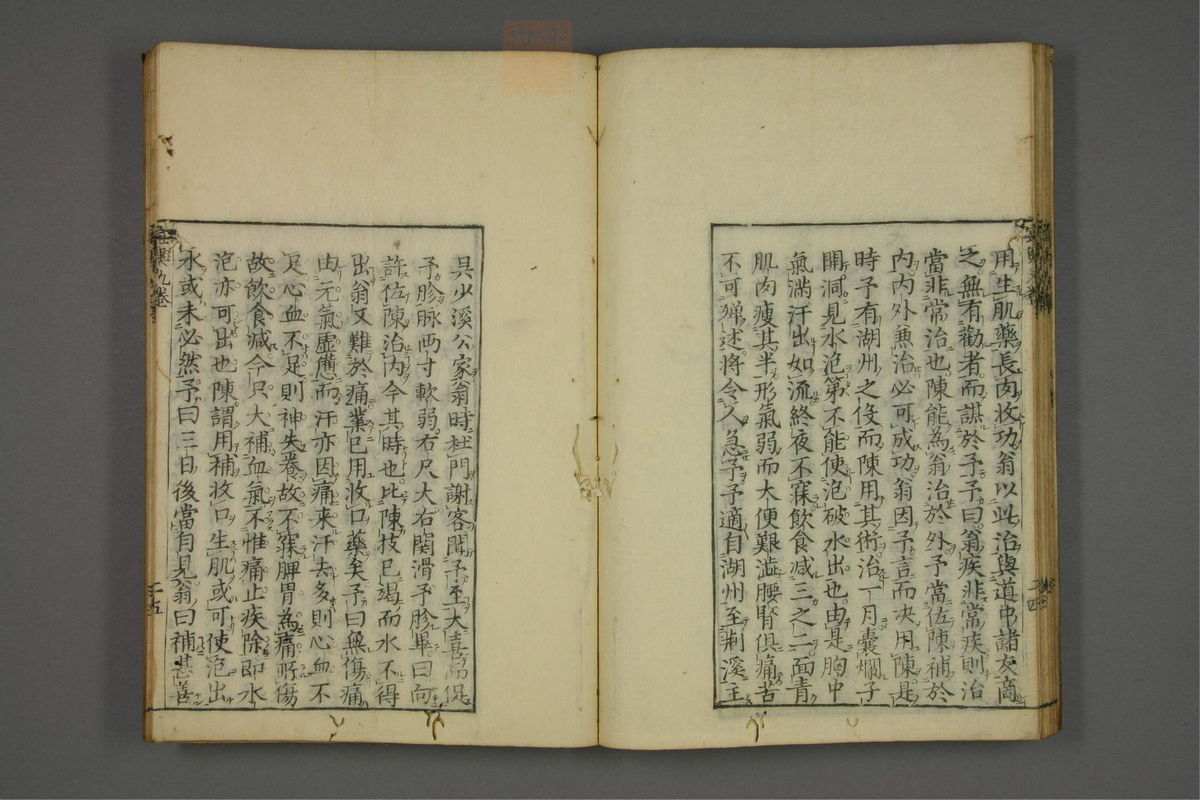 用生肌藥長肉收功翁以此治與道中諸友商
之無有勸者而謀於予予曰翁疾非常疾則治
當非常治也陳能為翁治於外予當佐陳補於
內內外兼治必可成功翁因予言而决用陳是
時予有湖州之役而陳用其術治一月囊爛子
開洞見水泡第不能使泡破水出也由是胸中
氣滿汗出如流終夜不寐飲食减三之二面青
肌肉瘦其半形氣弱而大便艱澁腰腎俱痛苦
不可殫述將令人急予予適自湖州至荆溪主
吳少溪公家翁時杜門謝客聞予至大喜
予胗脉兩寸軟弱右尺大右関滑予胗畢曰向
許佐陳治內今其時也比陳技已竭而水不得
出翁又難於痛業已用收口藥矣予曰無傷痛
由元氣虛憊而汗亦因痛来汗去多則心血不
足心血不足則神失養故不寐脾胃為痛所傷
故飲食减今只大補血氣不惟痛止疾除即水
泡亦可出也陳謂用補收口生肌或可使泡出
水或未必然予曰三日後當自見翁曰補甚善
九卷
二十五